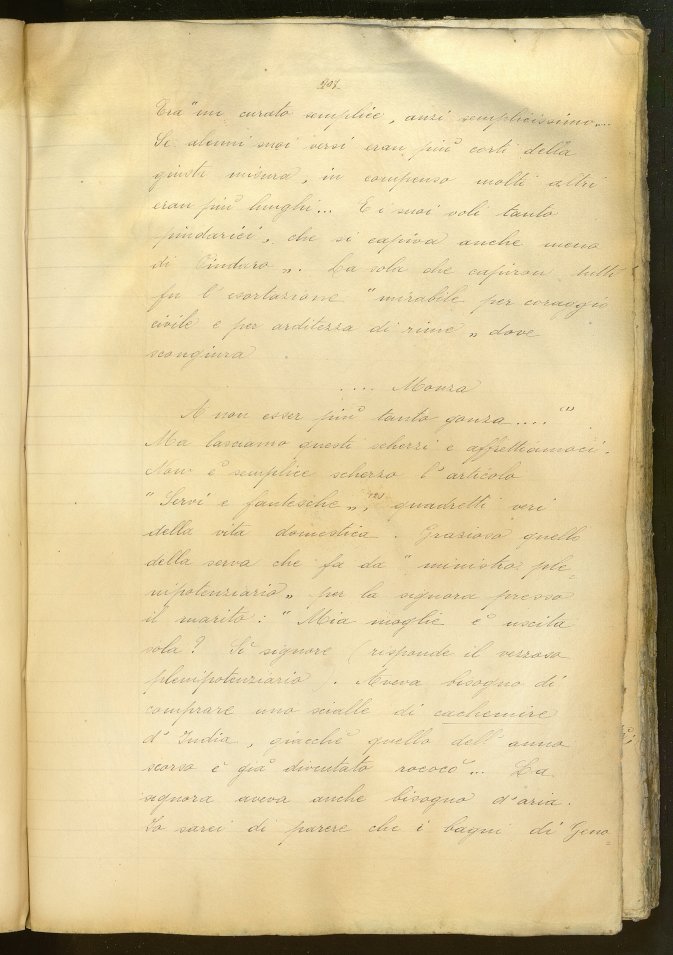 201
Era "un curato semplice, anzi semplicissimo...
Se alcuni suoi versi eran più corti della
giusta misura, in compenso molti altri
eran più lunghi... E i suoi voli tanto
pindarici, che si capiva anche meno
di Pindaro". La sola che capiron tutti
fu l'esortazione "mirabile per coraggio
civile e per arditezza di rime" dove
scongiura
.... Monza
A non esser più tanto gonza...." (1)
Ma lasciamo questi scherzi e affrettiamoci.
Non è semplice scherzo l'articolo
"Servi e fantesche", (2) quadretti veri
della vita domestica. Grazioso quello
della serva che fa da "ministro ple-
nipotenziario" per la signora presso
il marito: "Mia moglie è uscita
sola? Sì signore (risponde il vezzoso
plenipotenziario). Aveva bisogno di
comprare uno scialle di cachemire
d'India, giacchè quello dell'anno
scorso è già diventato rococò... La
signora aveva anche bisogno d'aria.
Io sarei di parere che i bagni di Geno-